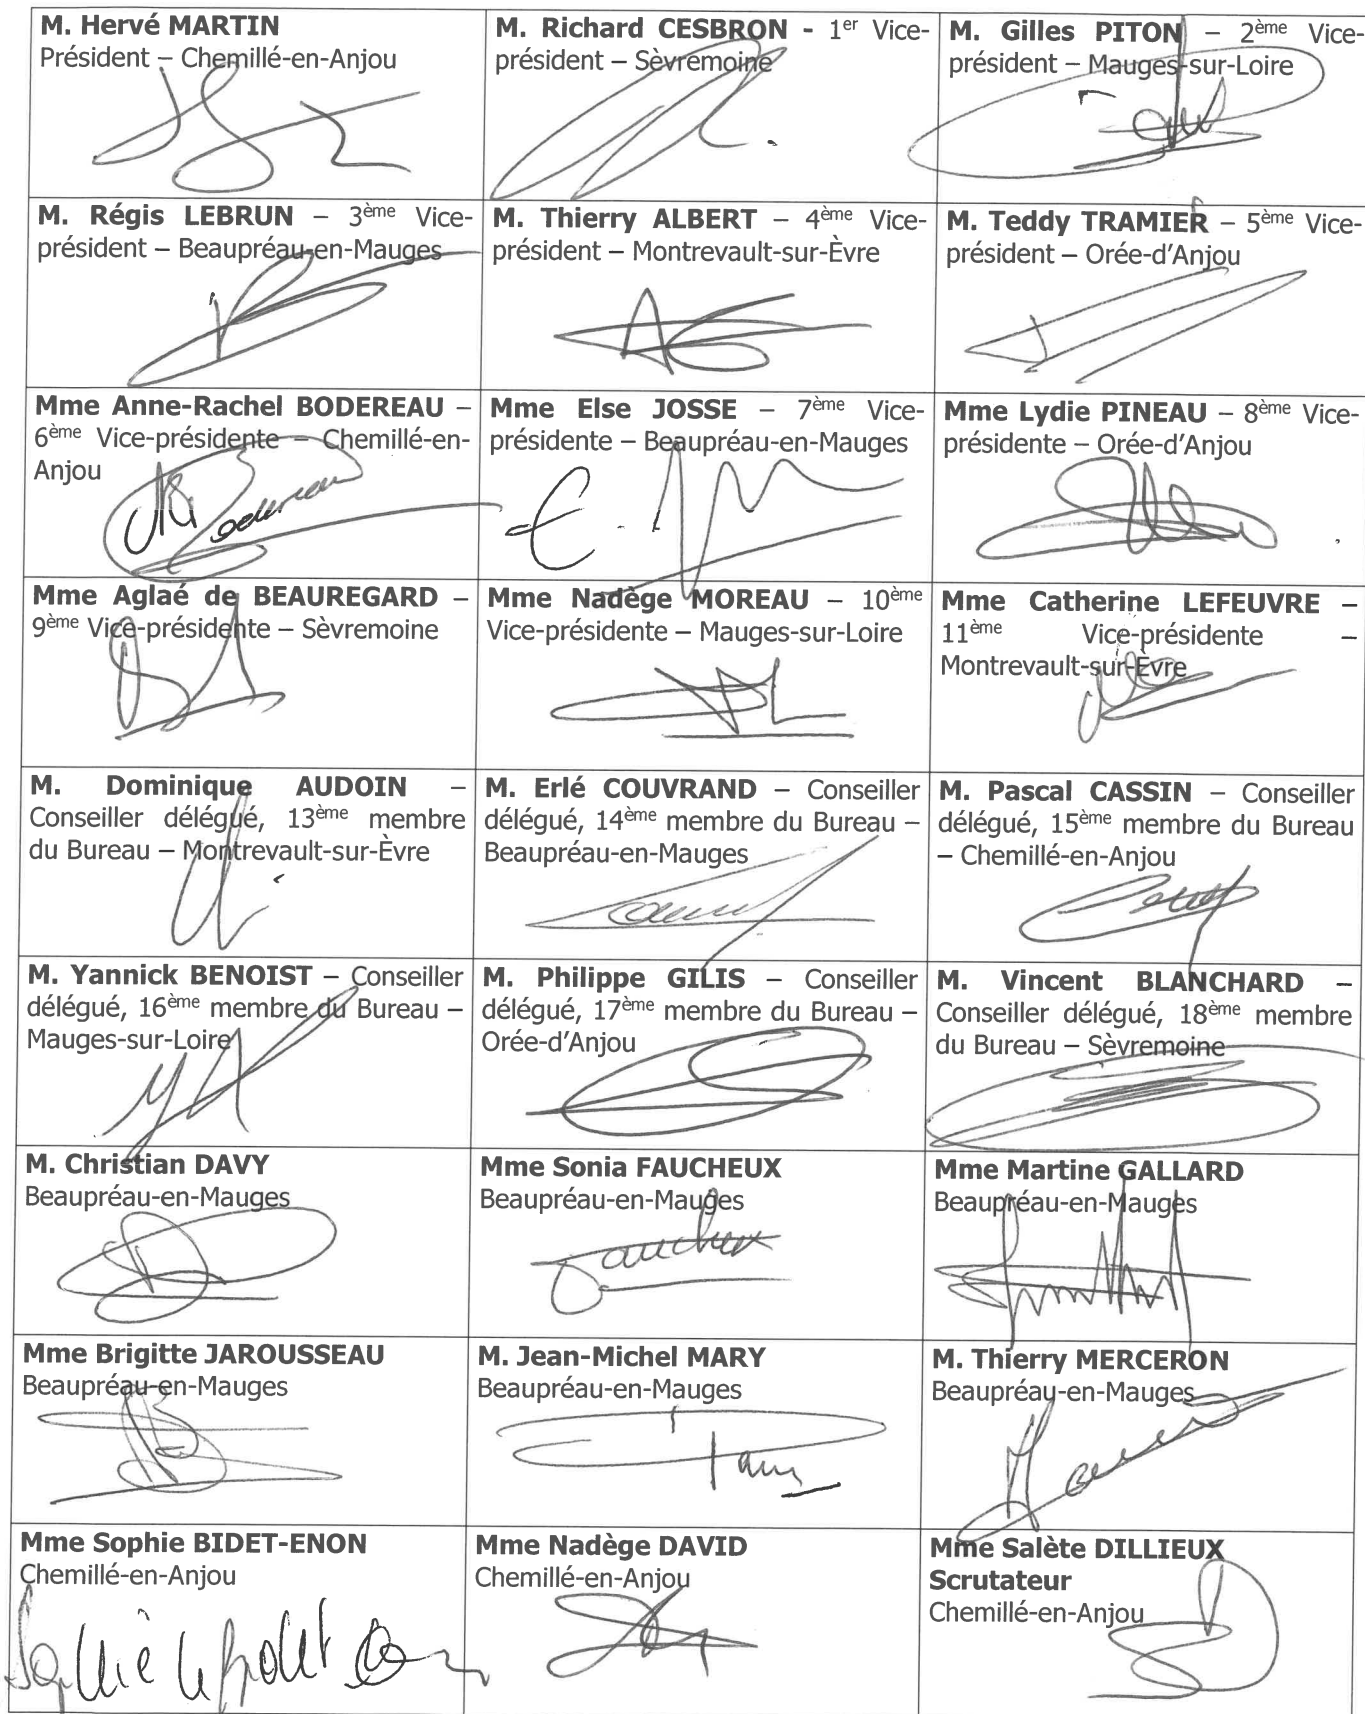 M. Hervé MARTIN
Président – Chemillé-en-Anjou
M. Richard CESBRON - 1er Vice-
président – Sèvremoine
M. Gilles PITON – 2ème Vice-
président – Mauges-sur-Loire
M. Régis LEBRUN – 3ème Vice-
président – Beaupréau-en-Mauges
M. Thierry ALBERT – 4ème Vice-
président – Montrevault-sur-Èvre
M. Teddy TRAMIER – 5ème Vice-
président – Orée-d'Anjou
Mme Anne-Rachel BODEREAU –
6ème Vice-présidente – Chemillé-en-
Anjou
Mme Else JOSSE – 7ème Vice-
présidente – Beaupréau-en-Mauges
Mme Lydie PINEAU – 8ème Vice-
présidente – Orée-d'Anjou
Mme Aglaé de BEAUREGARD –
9ème Vice-présidente – Sèvremoine
Mme Nadège MOREAU – 10ème
Vice-présidente – Mauges-sur-Loire
Mme Catherine LEFEUVRE –
11ème Vice-présidente –
Montrevault-sur-Èvre
M. Dominique AUDOIN –
Conseiller délégué, 13ème membre
du Bureau – Montrevault-sur-Èvre
M. Erlé COUVRAND – Conseiller
délégué, 14ème membre du Bureau –
Beaupréau-en-Mauges
M. Pascal CASSIN – Conseiller
délégué, 15ème membre du Bureau
– Chemillé-en-Anjou
M. Yannick BENOIST – Conseiller
délégué, 16ème membre du Bureau –
Mauges-sur-Loire
M. Philippe GILIS – Conseiller
délégué, 17ème membre du Bureau –
Orée-d'Anjou
M. Vincent BLANCHARD –
Conseiller délégué, 18ème membre
du Bureau – Sèvremoine
M. Christian DAVY
Beaupréau-en-Mauges
Mme Sonia FAUCHEUX
Beaupréau-en-Mauges
Mme Martine GALLARD
Beaupréau-en-Mauges
Mme Brigitte JAROUSSEAU
Beaupréau-en-Mauges
M. Jean-Michel MARY
Beaupréau-en-Mauges
M. Thierry MERCERON
Beaupréau-en-Mauges
Mme Sophie BIDET-ENON
Chemillé-en-Anjou
Mme Nadège DAVID
Chemillé-en-Anjou
Mme Salète DILLIEUX
Scrutateur
Chemillé-en-Anjou